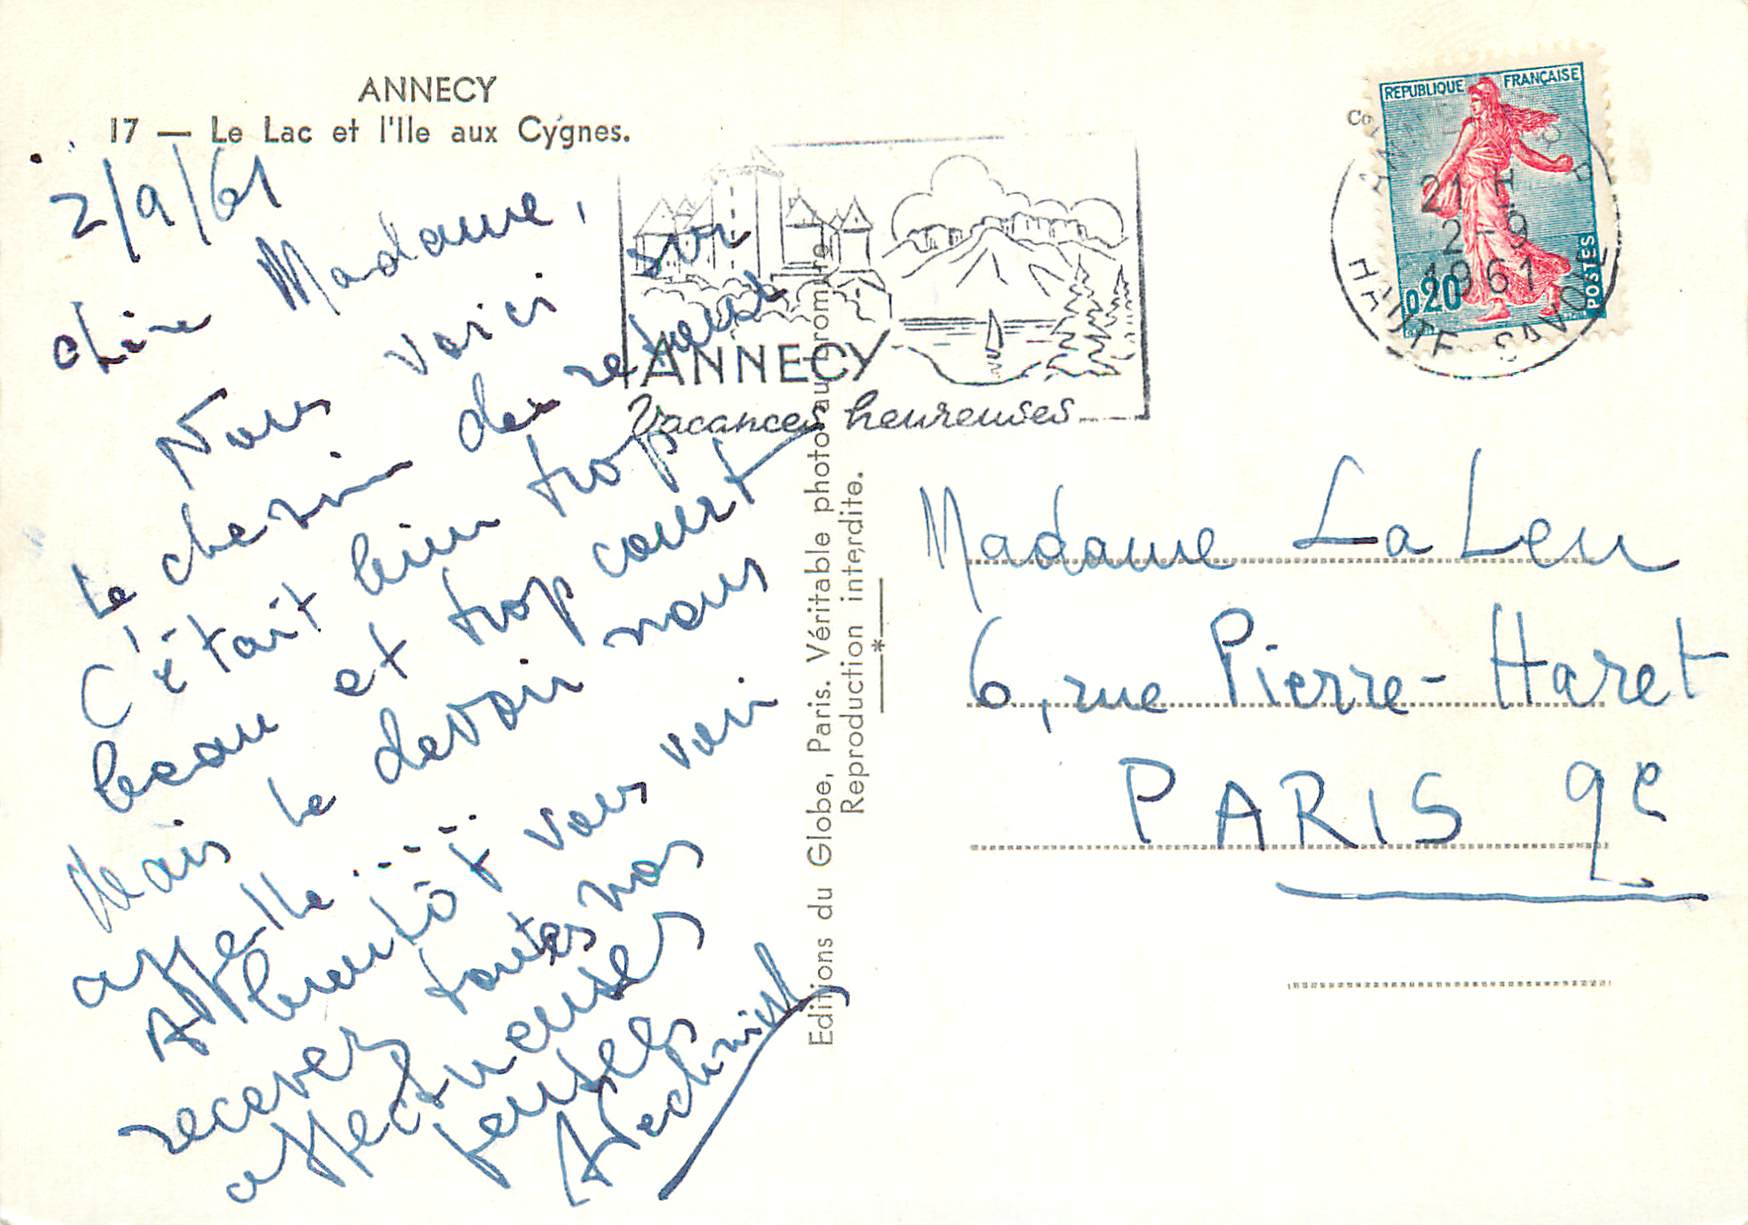 ANNECY
17 — Le Lac et l'Ile aux Cygnes.
2/9/61
Chère Madame,
Nous voici sur
le chemin de retour
C'était bien trop
beau et trop court
Mais le devoir nous
appelle.....
A bientôt vous voir
recevez toutes nos
affectueuses
pensées
ANNECY
Vacances heureuses
Editions du Globe, Paris. Véritable photo au bromure
Reproduction interdite.
REPUBLIQUE FRANÇAISE
0,20
POSTES
21 H
2-9
1961
HAUTE-SAVOIE
Madame LaLeu
6, rue Pierre-Haret
PARIS 9e